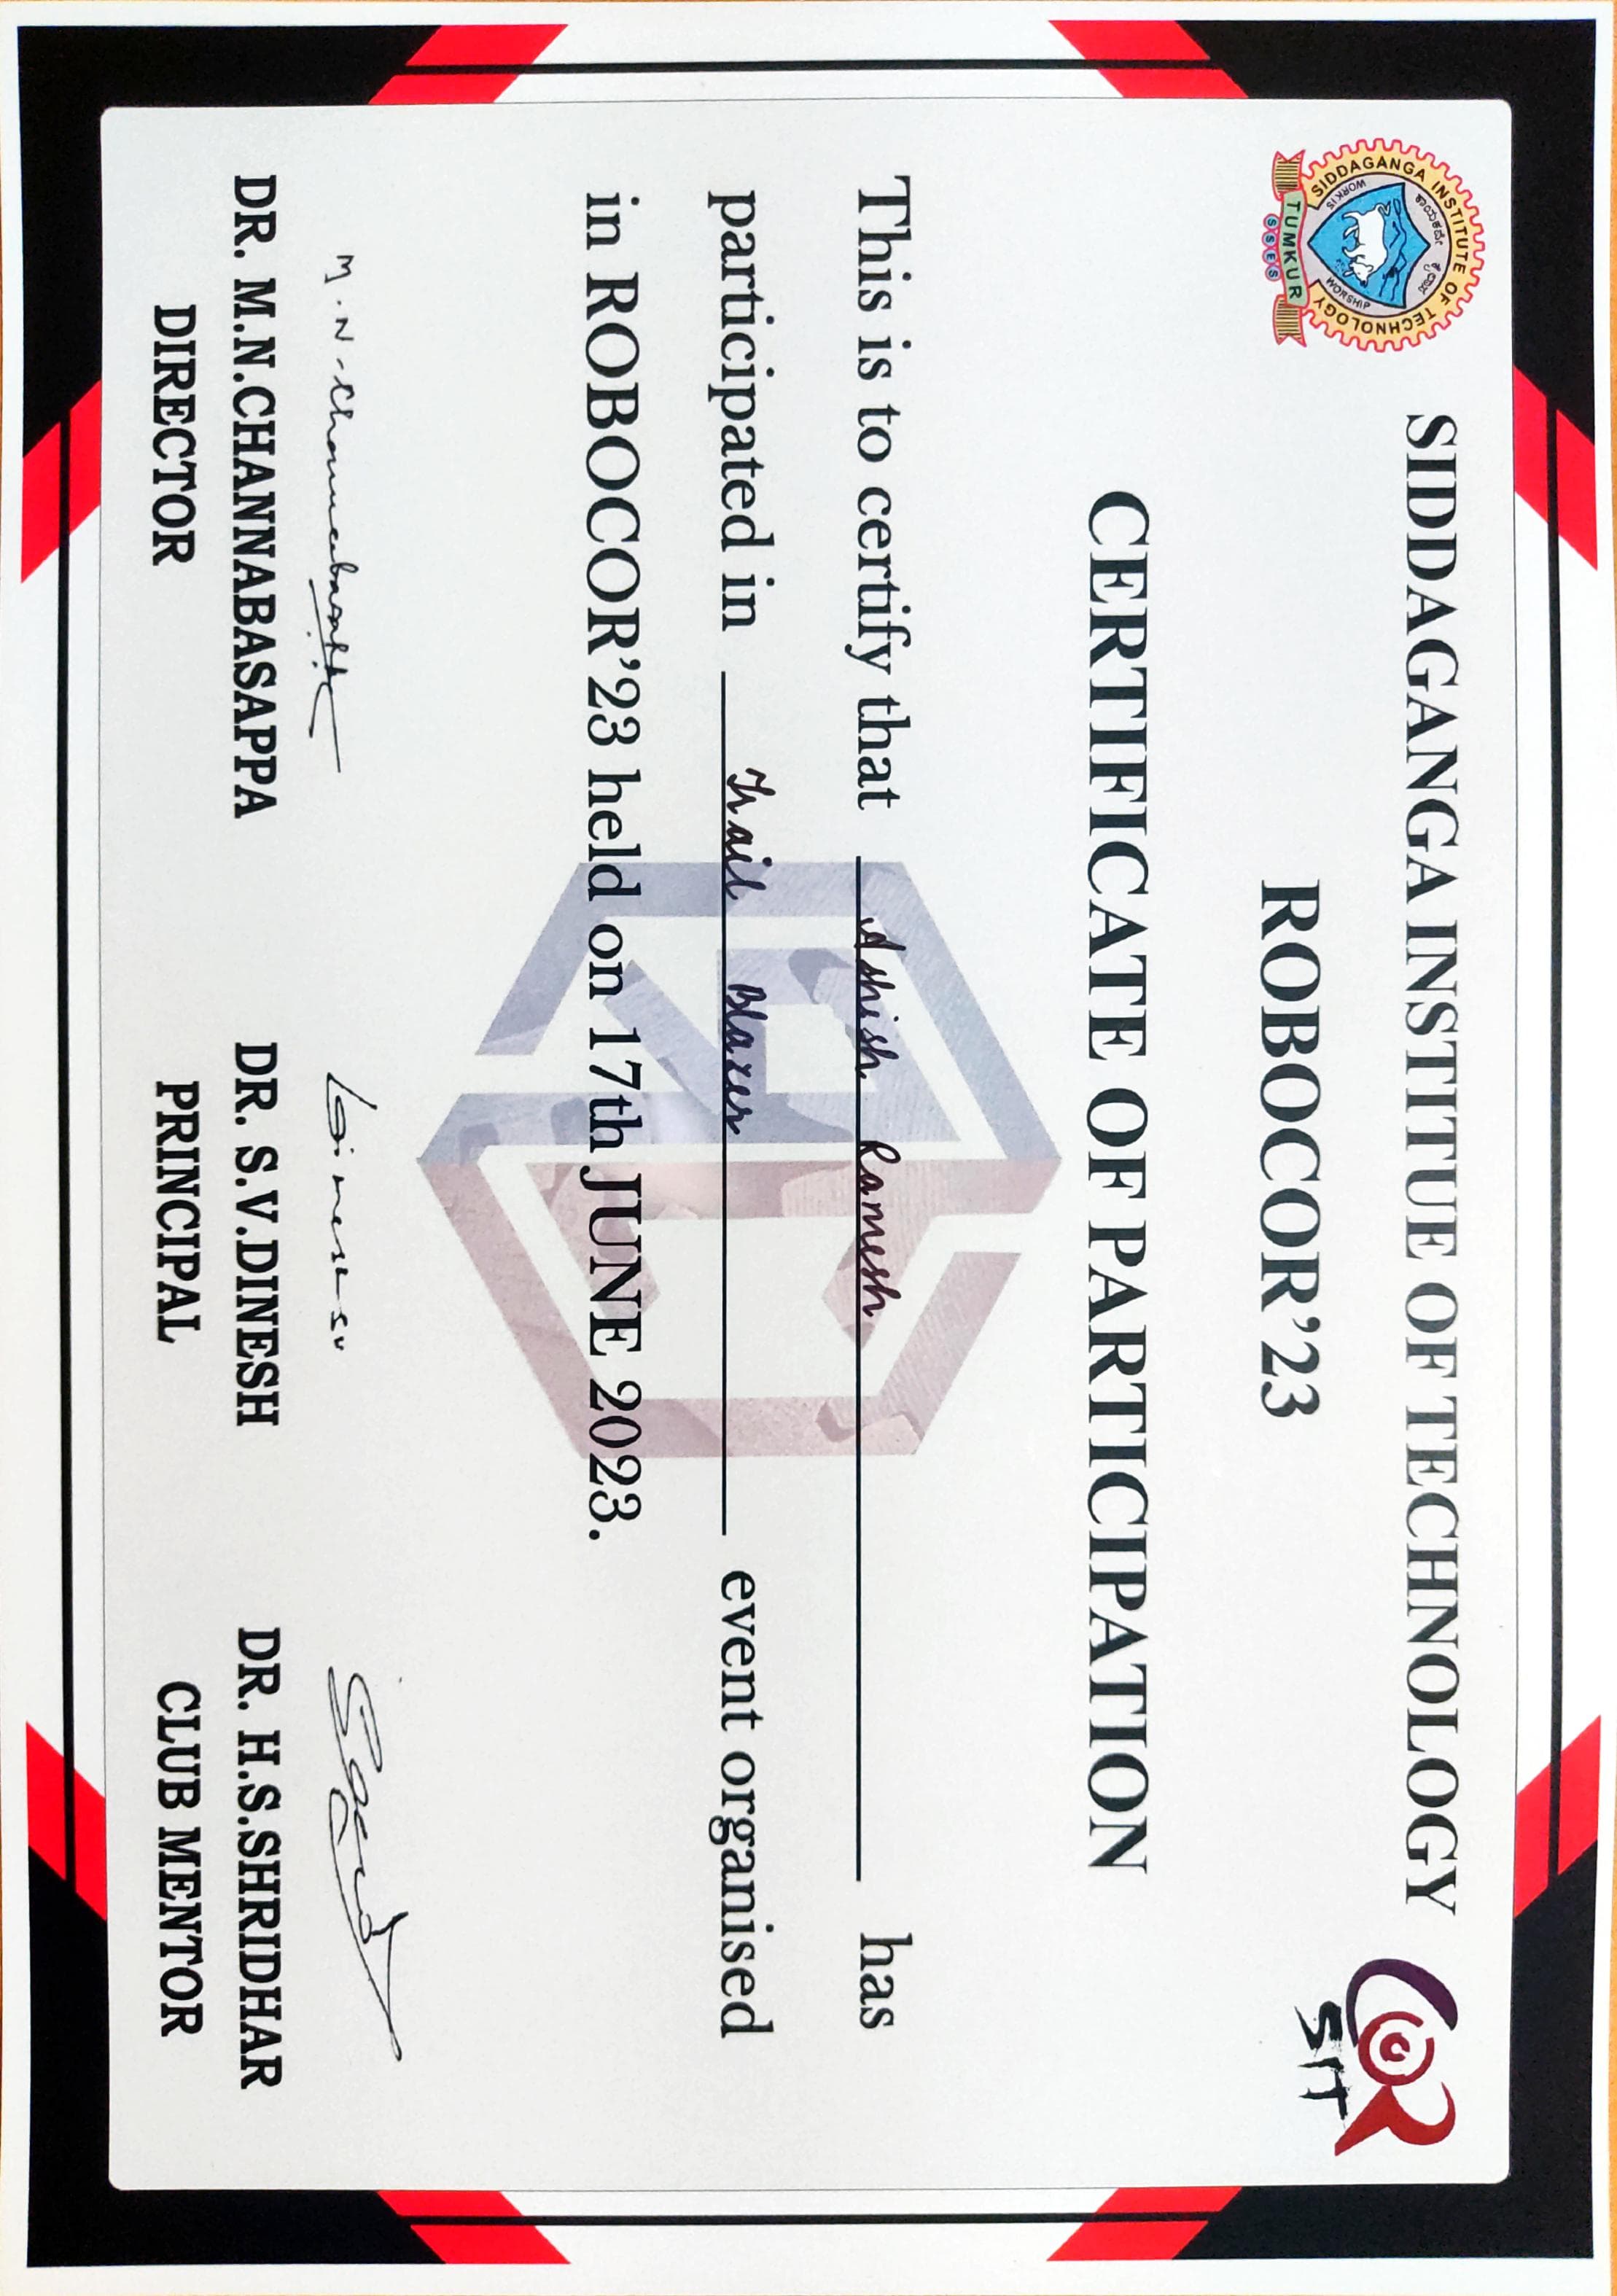 SIDDAGANGA INSTITUTE OF TECHNOLOGY
ಕಾಯಕವೇ ಕೈಲಾಸ
WORK IS WORSHIP
TUMKUR
SSES
SIDDAGANGA INSTITUE OF TECHNOLOGY
COR
SIT
ROBOCOR’23
CERTIFICATE OF PARTICIPATION
This is to certify that Ashish Ramesh has
participated in Trail Blazer event organised
in ROBOCOR’23 held on 17th JUNE 2023.
M.N.Channabasappa
Dinesh SV
DR. M.N.CHANNABASAPPA
DR. S.V.DINESH
DR. H.S.SHRIDHAR
DIRECTOR
PRINCIPAL
CLUB MENTOR